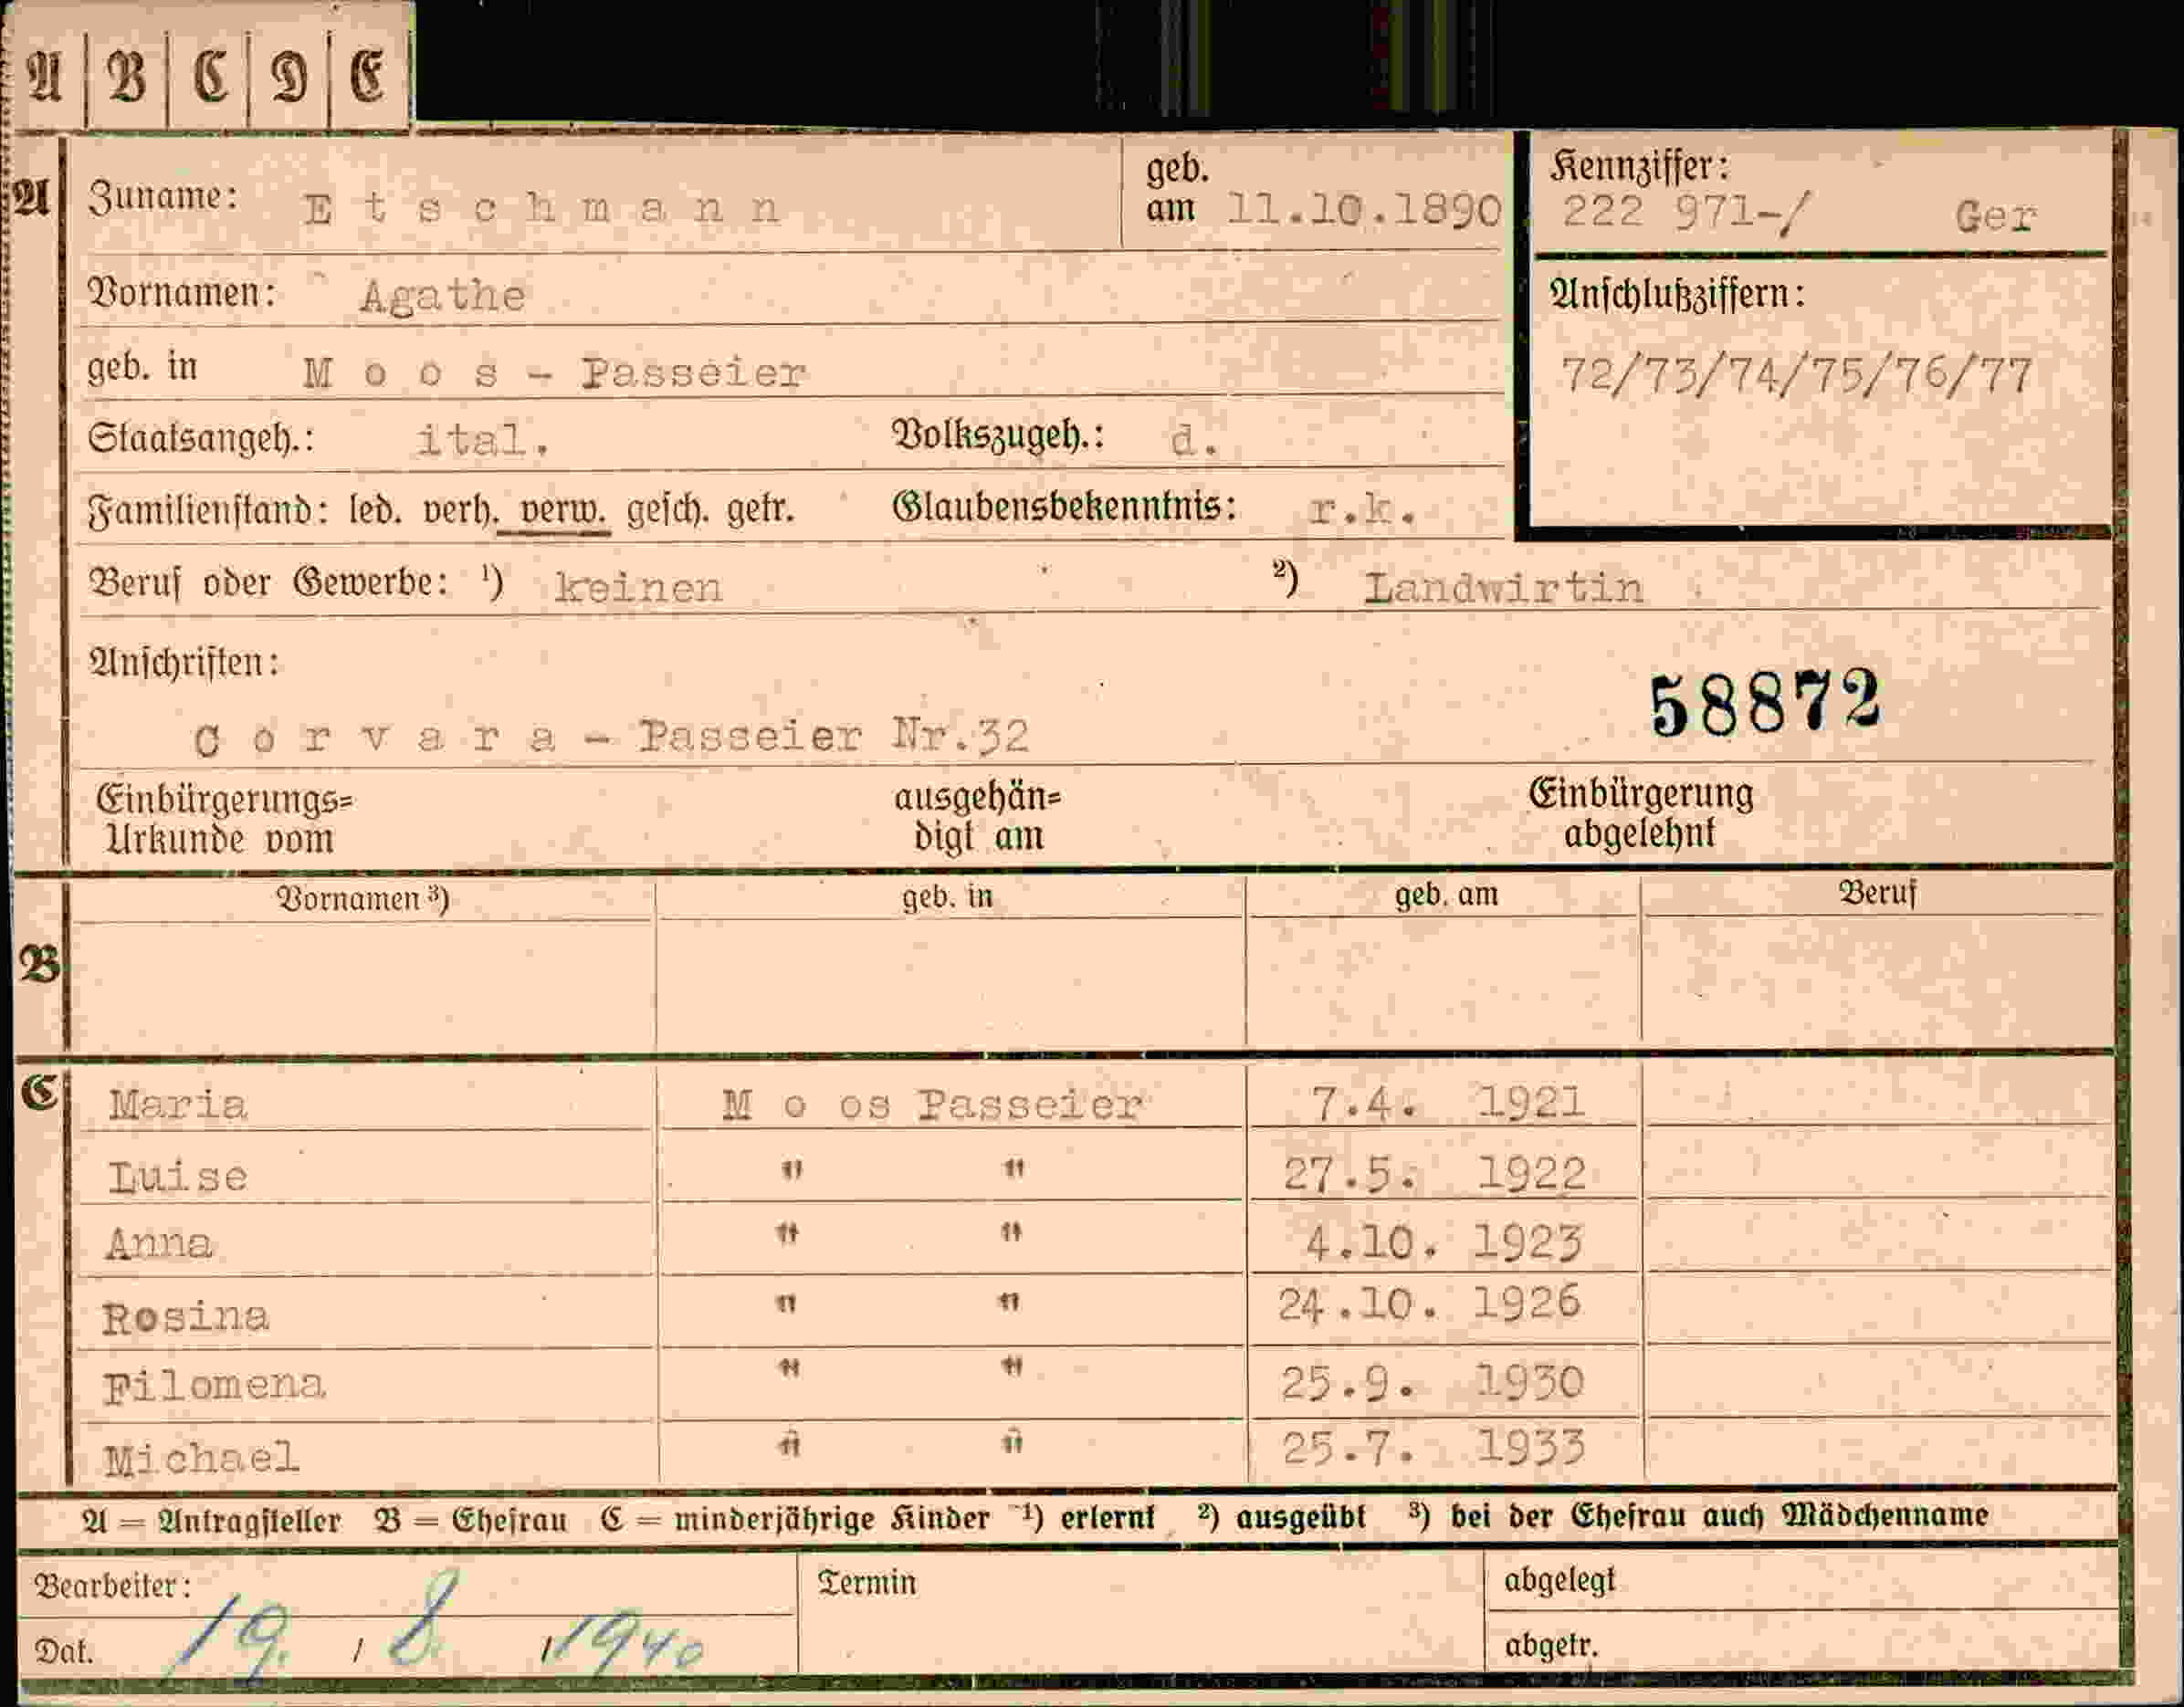 A B C D E
A Zuname: Etschmann geb. am 11.10.1890 Kennziffer: 222 971-/ Ger
Vornamen: Agathe Anschlußziffern:
geb. in Moos - Passeier 72/73/74/75/76/77
Staatsangeh.: ital. Volkszugeh.: d.
Familienstand: led. verh. verw. gesch. getr. Glaubensbekenntnis: r.k.
Beruf oder Gewerbe: ¹) keinen ²) Landwirtin
Anschriften:
58872
Corvara - Passeier Nr.32
Einbürgerungs= ausgehän= Einbürgerung
Urkunde vom digt am abgelehnt
Vornamen ³) geb. in geb. am Beruf
B
C Maria Moos Passeier 7.4. 1921
Luise " " 27.5. 1922
Anna " " 4.10. 1923
Rosina " " 24.10. 1926
Filomena " " 25.9. 1930
Michael " " 25.7. 1933
A = Antragsteller B = Ehefrau C = minderjährige Kinder ¹) erlernt ²) ausgeübt ³) bei der Ehefrau auch Mädchenname
Bearbeiter: Termin abgelegt
Dat. 19. / 8. /1940 abgetr.